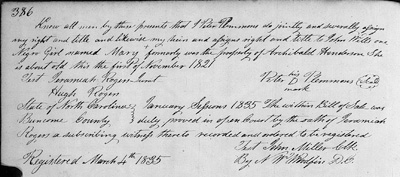 386
Know all men by these presents that I Peter Plemmons do jointly and severally assign
any right and title and likewise my heirs and assigns right and title to John Wells one
Negro Girl named Mary formerly was the property of Archibald Henderson She
is about old this the first of November 1821
Test Jeremiah Rogers Jurat Peter his D Plemmons (Seal)
Hugh Rogers mark
State of North Carolina } January Sessions 1835 The within Bill of Sale was
Buncome County } duly proved in open Court by the oath of Jeremiah
Rogers a subscribing witness thereto recorded and ordered to be registered
Test John Miller Clk
Registered March 4th 1835 By N W Woodfin D.C.